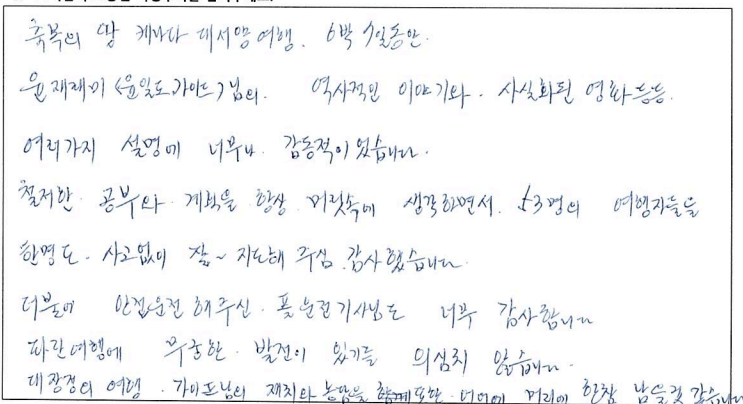 축복의 땅 캐나다 대서양여행. 6박 7일동안.
윤재래미 (윤일도가이드)님의. 역사적인 이야기와. 사실화된 영화등등.
여러가지 설명에 너무나. 감동적이었습니다.
철저한. 공부와. 계획을 항상 머릿속에 생각하면서. 53명의 여행자들을
한명도. 사고없이 잘~ 지도해 주심. 감사했습니다.
더불어 안전운전 해주신. 폴운전기사님도 너무 감사합니다
파란여행에 무궁한. 발전이 있기를 의심치 않습니다.
대장정의 여행. 가이드님의 재치와 농담을 함께 머리에 한참 남을것 같습니다